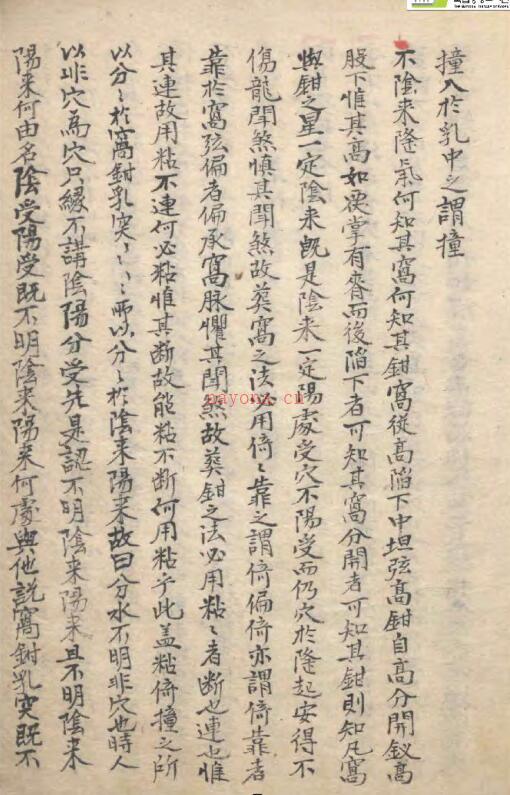 撞入於乳中之謂撞
不陰来隆氣何知其窩何知其鉗窩從高陷下中坦弦高鉗自高分開釵高
股下惟其高如覆掌有脊而後陷下者可知其窩分開者可知其鉗則知凡窩
與鉗之星一定陰来既是陰来一定陽處受穴不陽受而仍穴於隆起安得不
傷龍聞煞慎其聞煞故葬窩之法必用倚〻靠之謂倚偏倚亦謂倚靠者
靠於窩弦偏者偏承窩脉懼其聞煞故葬鉗之法必用粘〻者断也連也惟
其連故用粘不連何必粘惟其断故能粘不断何用粘乎此盖粘倚撞之所
以分〻於窩鉗乳突〻〻〻〻所以分〻於陰来陽来故曰分水不明非穴也時人
以非穴為穴只緣不講陰陽分受先是認不明陰来陽来且不明陰来
陽来何由名陰受陽受既不明陰来陽来何處與他説窩鉗乳突既不
payone.cn